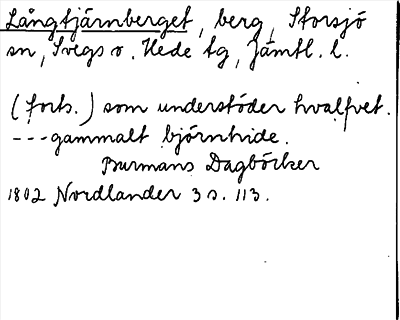 Långtjärnberget, berg, Storsjö
sn, Svegs o. Hede tg, Jämtl. l.
(forts.) som understöder hvalfvet.
---gammalt björnhide.
Burmans Dagböcker
1802 Nordlander 3 s. 113.